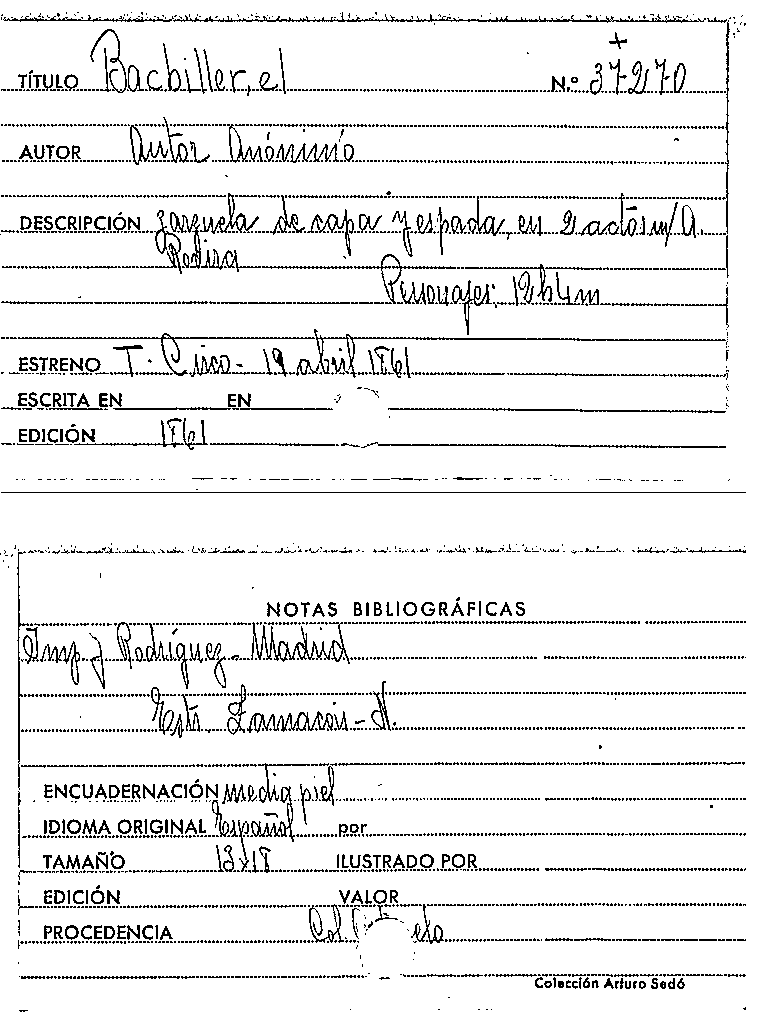 +
TÍTULO Bachiller, el N.º 37270
AUTOR Autor Anónimo
DESCRIPCIÓN zarzuela de capa y espada, en 2 actos m/A.
Rovira
Personajes: 12h4m
ESTRENO T. Circo - 19 abril 1861
ESCRITA EN EN
EDICIÓN 1861
NOTAS BIBLIOGRÁFICAS
Imp. J. Rodríguez - Madrid
ENCUADERNACIÓN media piel
IDIOMA ORIGINAL Español por
TAMAÑO 13x18 ILUSTRADO POR
EDICIÓN VALOR
PROCEDENCIA Col.
Colección Arturo Sedó